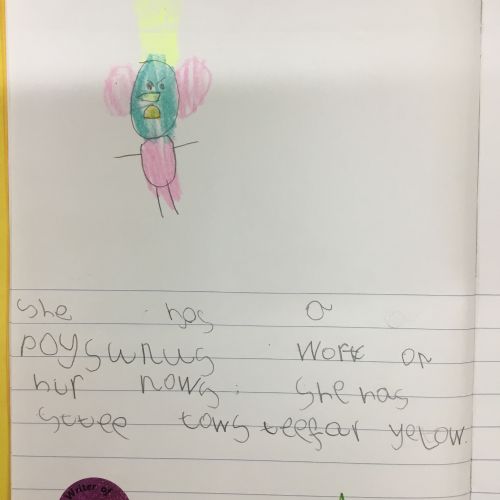 she has a
poysunus work on
hur nows. she has
stee tows teef ar yelow.
Writer of